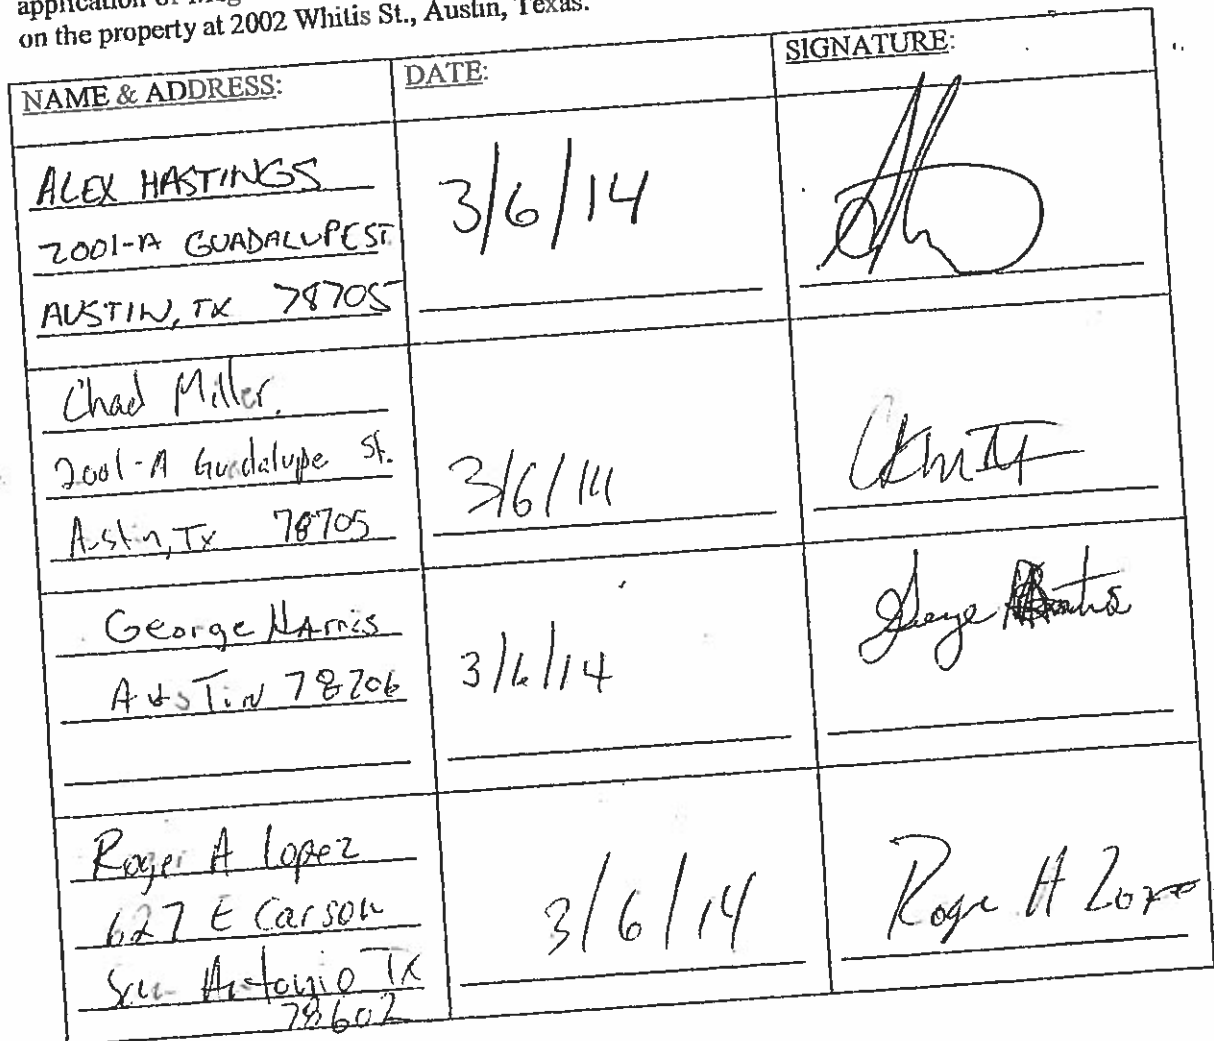 application of
on the property at 2002 Whitis St., Austin, Texas.
NAME & ADDRESS: DATE: SIGNATURE:
ALEX HASTINGS
2001-A GUADALUPE ST
AUSTIN, TX 78705
3/6/14
Chad Miller.
2001-A Guadalupe St.
Austin, Tx 78705
3/6/14
George HArris
AusTin 78706
3/6/14
George
Roger A Lopez
627 E Carson
San Antonio TX
78602
3/6/14
Roger A Lopez